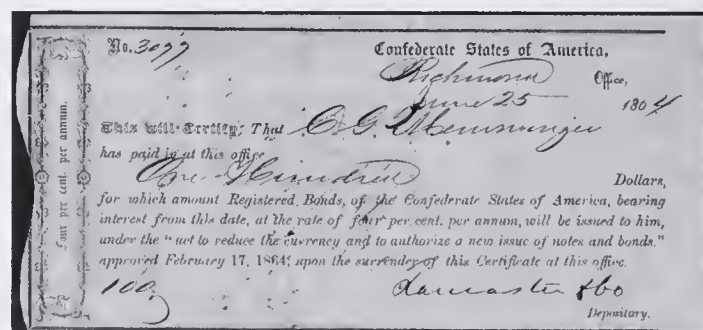 No. 3099
Confederate States of America,
Richmond Office,
June 25 1864
This will Certify, That C G Memminger
has paid in at this office
One Hundred Dollars,
for which amount Registered Bonds, of the Confederate States of America, bearing
interest from this date, at the rate of four per cent. per annum, will be issued to him,
under the "act to reduce the currency and to authorize a new issue of notes and bonds."
approved February 17, 1864, upon the surrender of this Certificate at this office.
100 Lancaster & Co
Depositary.
Four per cent. per annum.